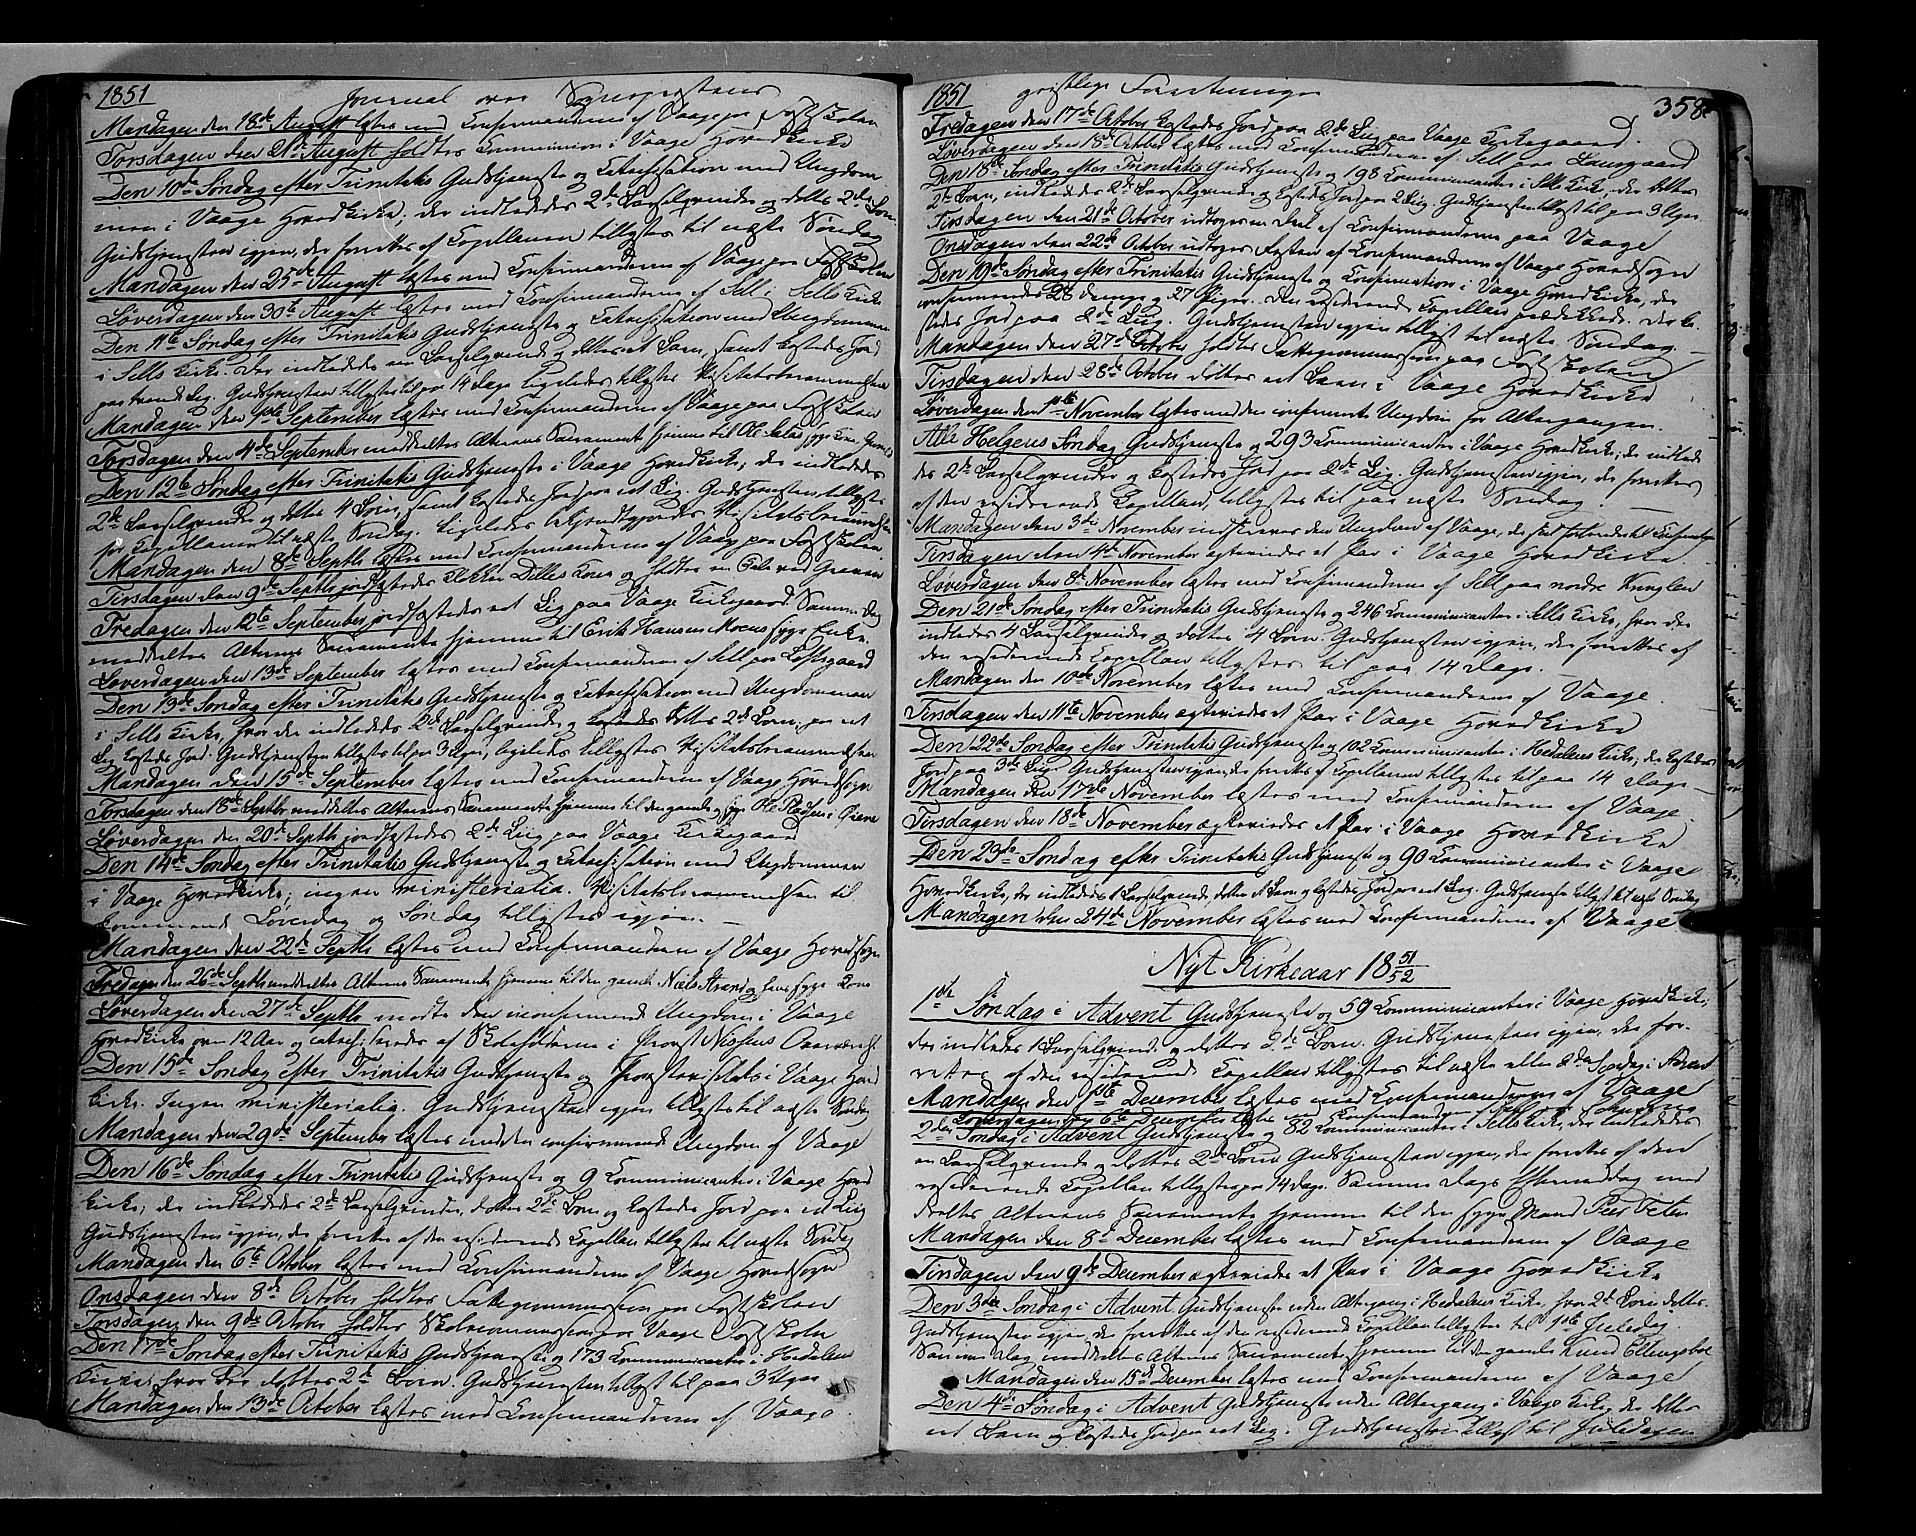 1851
Journal over Sognepræstens
Mandagen den 18de August læstes med Confirmanderne af Vaage paa Fastskolen
Torsdagen den 21de August holdtes Communion i Vaage Hovedkirke
Den 10de Søndag efter Trinitatis Gudstjeneste og Catechisation med Ungdom
men i Vaage Hovedkirke; der indlededes 2de Barselqvinder og døbtes 2de Børn.
Gudstjenesten igjen, der forrettes af Capellanen tillystes til næste Søndag
Mandagen den 25de August læstes med Confirmanderne af Vaage paa Fastskolen
Løverdagen den 30te August læstes med Confirmanderne af Sell i Sells Kirke
Den 11te Søndag efter Trinitatis Gudstjeneste og Catechisation med Ungdommen
i Sells Kirke. Der indlededes en Barselqvinde og døbtes et Barn, samt kastedes Jord
paa trende Lig. Gudstjenesten tillystes til paa 14 Dage ligeledes tillystes Visitatsberammelsen
Mandagen den 1ste September læstes med Confirmanderne af Vaage paa Fastskolen
Torsdagen den 4de September meddeeltes Alterens Sacrament hjemme til Ole syge Kone
Den 12te Søndag efter Trinitatis Gudstjeneste i Vaage Hovedkirke; der indlededes
2de Barselqvinder og døbtes 4 Børn, samt kastedes Jord paa et Lig. Gudstjenesten tillystes
for Capellanen til næste Søndag. Ligeledes bekjendtgjordes Visitatsberammelsen
Mandagen den 8de Septbr læstes med Confirmanderne af Vaage paa Fastskolen
Tirsdagen den 9de Septbr jordfæstedes Kone og holdtes en Tale ved Graven
Fredagen den 12te September jordfæstedes et Lig paa Vaage Kirkegaard. Samme Dag
meddeeltes Alterens Sacramente hjemme til Erik Hansen Moens syge Enke.
Løverdagen den 13de September læstes med Confirmanderne af Sell paa Loftsgaard
Den 13de Søndag efter Trinitatis Gudstjeneste og Catechisation med Ungdommen
i Sells Kirke, hvor der indlededes 2de Barselqvinder og døbtes 2de Børn; paa et
Lig kastedes Jord. Gudstjenesten tillystes til paa 3 Uger, ligeledes tillystes Visitatsberammelsen
Mandagen den 15de September læstes med Confirmanderne af Vaage Hovedsogn
Torsdagen den 18de Septbr meddeltes Alterens Sacramente hjemme til den gamle og syge Ole
Løverdagen den 20de Septbr jordfæstedes 2de Lig paa Vaage Kirkegaard
Den 14de Søndag efter Trinitatis Gudstjeneste og Catechisation med Ungdommen
i Vaage Hovedkirke; ingen ministerialia. Visitatsberammelsen til
kommende Løverdag og Søndag tillystes igjen.
Mandagen den 22de Septbr læstes med Confirmanderne af Vaage Hovedsogn
Fredagen den 26de Septbr meddeeltes Alterens Sacramente hjemme til den gamle Niels Strand og hans syge Kone
Løverdagen den 27de Septbr mødte den uconfirmerede Ungdom i Vaage
Hovedkirke over 12 Aar og catechiseredes af Skoleholderne i Provst Nissens Overværelse
Den 15de Søndag efter Trinitatis Gudstjeneste og Provstevisitats i Vaage Hoved
kirke. Ingen ministerialia. Gudstjenesten igjen tillystes til næste Søndag
Mandagen den 29de September læstes med den confirmerende Ungdom af Vaage
Den 16de Søndag efter Trinitatis Gudstjeneste og 9 Communicanter i Vaage Hoved
kirke; der indlededes 2de Barselqvinder, døbtes 2de Børn og kastedes Jord paa et Lig
Gudstjenesten igjen, der forrettes af den residerende Capellan tillystes til næste Søndag
Mandagen den 6te October læstes med Confirmanderne af Vaage Hovedsogn
Onsdagen den 8de October holdtes Fattigcommission paa Fastskolen
Torsdagen den 9de October holdtes Skolecommission paa Vaage Fastskole
Den 17de Søndag efter Trinitatis Gudstjeneste og 173 Communicanter i Hedalens
Kirke, hvor der døbtes 2de Børn. Gudstjenesten tillyst til paa 3 Uger
Mandagen den 13de October læstes med Confirmanderne af Vaage
1851
geistlige Forretninger
358.
Fredagen den 17de October kastedes Jord paa 2de Lig paa Vaage Kirkegaard.
Løverdagen den 18de October læstes med Confirmanderne af Sell paa Laurgaard
Den 18de Søndag efter Trinitatis Gudstjeneste og 198 Communicanter i Sells Kirke, der døbtes
2de Børn, indlededes 2de Barselqvinder og kastedes Jord paa 2 Lig. Gudstjenesten tillyst til paa 3 Uger.
Tirsdagen den 21de October indtoges en Deel af Confirmanderne paa Vaage
Onsdagen den 22de October udtoges Resten af Confirmanderne af Vaage Hovedsogn
Den 19de Søndag efter Trinitatis Gudstjeneste og Confirmation i Vaage Hovedkirke, der
confirmeredes 28 Drenge og 27 Piger. Den residerende Capellan prædikede. Der ka-
stedes Jord paa 2de Lig. Gudstjenesten igjen tillyst til næste Søndag.
Mandagen den 27de October holdtes Fattigcommission paa Fastskolen
Tirsdagen den 28de October døbtes et Barn i Vaage Hovedkirke
Løverdagen den 1ste November læstes med den confirmerte Ungdom for Altergangen.
Alle Helgens Søndag Gudstjeneste og 293 Communicanter i Vaage Hovedkirke; der indlede-
des 2de Barselqvinder og kastedes Jord paa 2de Lig. Gudstjenesten igjen, der forrettes
af den residerende Capellan, tillystes til paa næste Søndag.
Mandagen den 3die November indskreves den Ungdom af Vaage, der skal forberedes til Confirmation
Tirsdagen den 4de November ægteviedes et Par i Vaage Hovedkirke.
Løverdagen den 8de November læstes med Confirmanderne af Sell paa nordre
Den 21de Søndag efter Trinitatis Gudstjeneste og 246 Communicanter i Sells Kirke, hvor der
indlededes 4 Barselqvinder og døbtes 4 Børn. Gudstjenesten igjen, der forrettes af
den residerende Capellan tillystes til paa 14 Dage.
Mandagen den 10de November læstes med Confirmanderne af Vaage.
Tirsdagen den 11te November ægteviedes et Par i Vaage Hovedkirke
Den 22de Søndag efter Trinitatis Gudstjeneste og 102 Communicanter i Hedalens Kirke, der kastedes
Jord paa 3de Lig. Gudstjenesten igjen, der forrettes af Capellanen tillystes til paa 14 Dage
Mandagen den 17de November læstes med Confirmanderne af Vaage.
Tirsdagen den 18de November ægteviedes et Par i Vaage Hovedkirke
Den 23de Søndag efter Trinitatis Gudstjeneste og 90 Communicanter i Vaage
Hovedkirke, der indlededes 1 Barselqvinde, døbtes et Barn og kastedes Jord paa et Lig. Gudstjeneste tillyst til næste Søndag
Mandagen den 24de November læstes med Confirmanderne af Vaage
Nyt Kirkeaar 18 51/52
1ste Søndag i Advent Gudstjeneste og 59 Communicanter i Vaage Hovedkirke;
der indledes 1 Barselqvinde og døbtes 2de Børn. Gudstjenesten igjen, der for-
rettes af den residerende Capellan tillystes til næste eller 2den Søndag i Advent
Mandagen den 1ste December læstes med Confirmanderne af Vaage
Løverdagen den 6te December læstes med Confirmanderne af Sell
2den Søndag i Advent Gudstjeneste og 82 Communicanter i Sells Kirke, der indlededes
en Barselqvinde og døbtes 2de Børn. Gudstjenesten igjen, der forrettes af den
residerende Capellan tillystes paa 14 Dage. Samme Dags Eftermiddag med-
deeltes Alterens Sacramente hjemme til den syge Mand Peer Teten
Mandagen den 8de December læstes med Confirmanderne af Vaage
Tirsdagen den 9de December ægteviedes et Par i Vaage Hovedkirke
Den 3die Søndag i Advent Gudstjeneste uden Altergang i Hedalens Kirke, hvor 2de Børn døbtes.
Gudstjenesten igjen, der forrettes af den residerende Capellan tillystes til 1ste Juledag.
Samme Dag meddeeltes Alterens Sacramente hjemme til den gamle Knud Ellingsboe
Mandagen den 15de December læstes med Confirmanderne af Vaage
Den 4de Søndag i Advent Gudstjeneste uden Altergang i Vaage Kirke, der døbtes
et Barn og kastedes Jord paa et Lig. Gudstjenesten tillyst til Juledagen